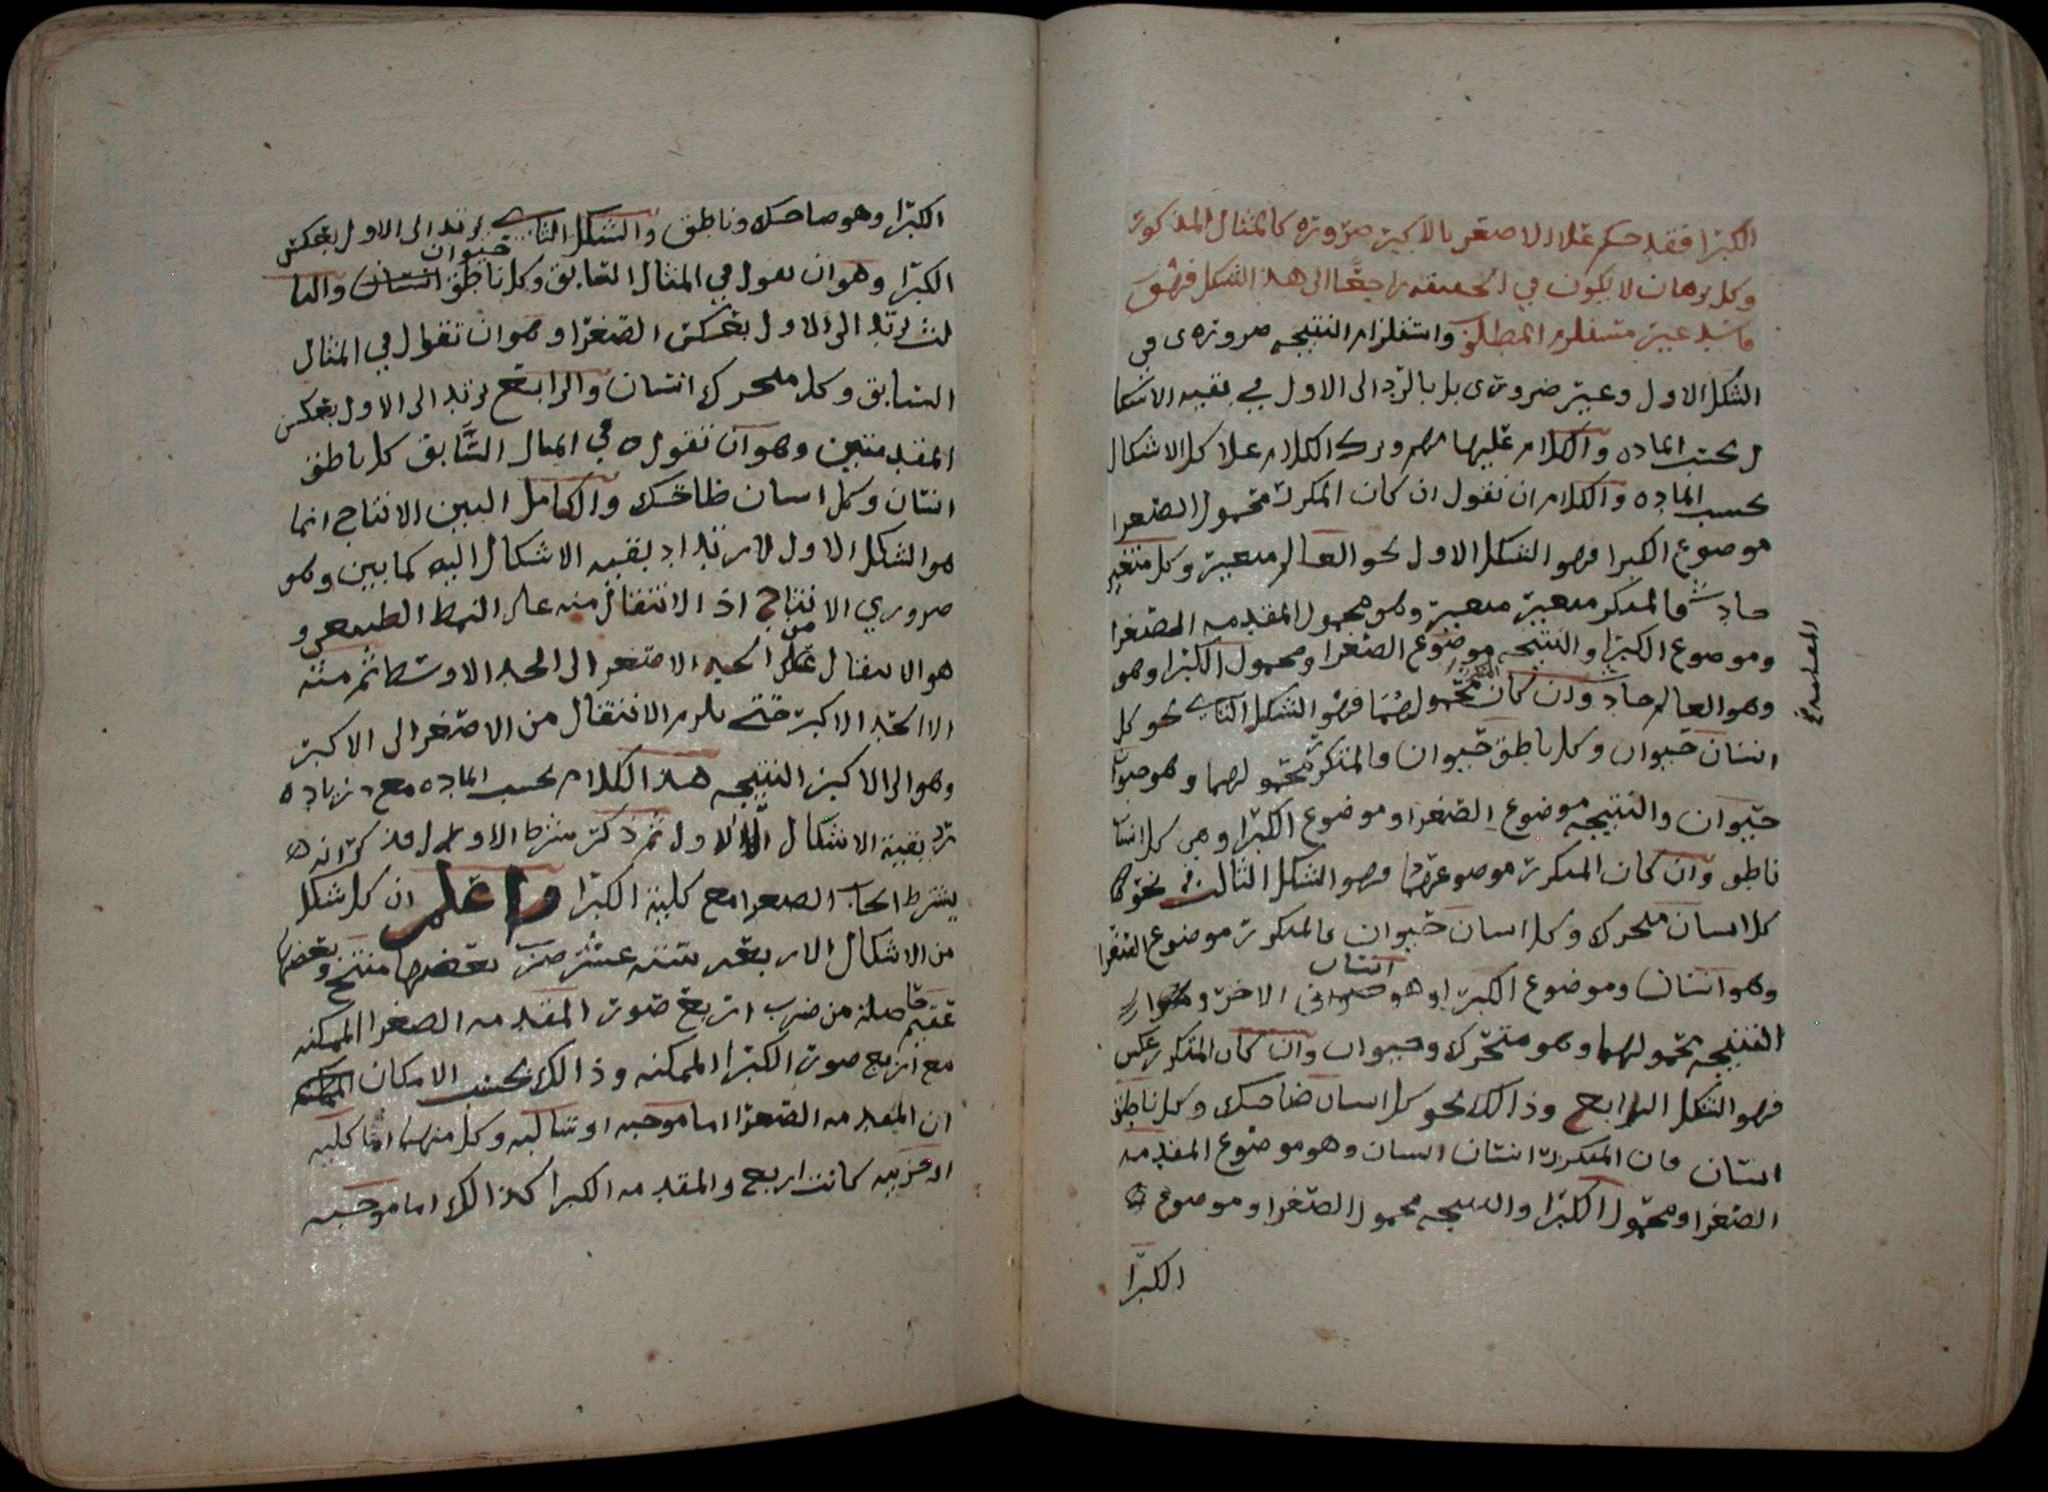 الكبرا فقد حكم علا الاصغر بالاكبر ضروره كالمثال المذكور
وكل برهان لا يكون في الحقيقه راجعا الى هذا الشكل فهو
فاسد غير مستلزم المطلق واستلزام النتيجه ضروري في
الشكل الاول وغير ضروري بل بالرد الى الاول في بقيه الاشكا
ل بحسب الماده والكلام عليها الكلام علا كل الاشكال
بحسب الماده والكلام ان نقول ان كان المكرر محمول الصغرا
موضوع الكبرا فهو الشكل الاول نحو العالم متغير وكل متغير
حادث فالمتكرر متغير متغير وهو محمول المقدمه الصغرا
وموضوع الكبرا والنتيجه موضوع الصغرا ومحمول الكبرا وهو
وهو العالم حادث وان كان المتكرر محمولهما فهو الشكل الثاني نحو كل
انسان حيوان وكل ناطق حيوان فالمتكرر محمولهما وهو حيوان
حيوان والنتيجه موضوع الصغرا وموضوع الكبرا وهي كل انسا
ناطق وان كان المتكرر موضوعهما فهو الشكل الثالث نحو
كل انسان متحرك وكل انسان حيوان فالمتكرر موضوع الصغرا
وهو انسان وموضوع الكبرا وهو انسان الاخر
النتيجه محمولهما وهو متحرك وحيوان وان كان المتكرر عكس
فهو الشكل الرابع وذالك نحو كل انسان ضاحك وكل ناطق
انسان فان المتكرر انسان انسان وهو موضوع المقدمه
الصغرا ومحمول الكبرا والنتيجه محمول الصغرا وموضوع
الكبرا
الكبرا وهو ضاحك وناطق والشكل الثاني يرتد الى الاول بعكس
الكبرا وهو ان نقول في المثال السابق وكل ناطق انسان حيوان والثا
لث يرتد الى الاول بعكس الصغرا وهو ان تقول في المثال
السابق وكل متحرك انسان والرابع يرتد الى الاول بعكس
المقدمتين وهو ان نقول في المثال السابق كل ناطق
انسان وكل انسان ضاحك والكامل البين الانتاج انما
هو الشكل الاول لارتداد بقيه الاشكال اليه كما بين وهو
ضروري الانتاج اذ الانتقال منه على النمط الطبيعي و
هو الانتقال من الحد الاصغر الى الحد الاوسط ثم منه
الا الحد الاكبر حتى يلزم الانتقال من الاصغر الى الاكبر
وهو الى الاكبر النتيجه هذا الكلام بحسب الماده مع زياده
رد بقية الاشكال الا الاول ثم ذكر شرط الاول فذكر انه
يشترط ايجاب الصغرا مع كلية الكبرا واعلم ان كل شكل
من الاشكال الاربعه سته عشر ضرب بعضها منتج وبعضها
عقيم حاصلة من ضرب اربع صور المقدمه الصغرا الممكنه
مع اربع صور الكبرا الممكنه وذالك بحسب الامكان
ان المقدمه الصغرا اما موجبه او سالبه وكل منهما اما كليه
او جزييه كانت اربع والمقدمه الكبرا كذالك اما موجبه